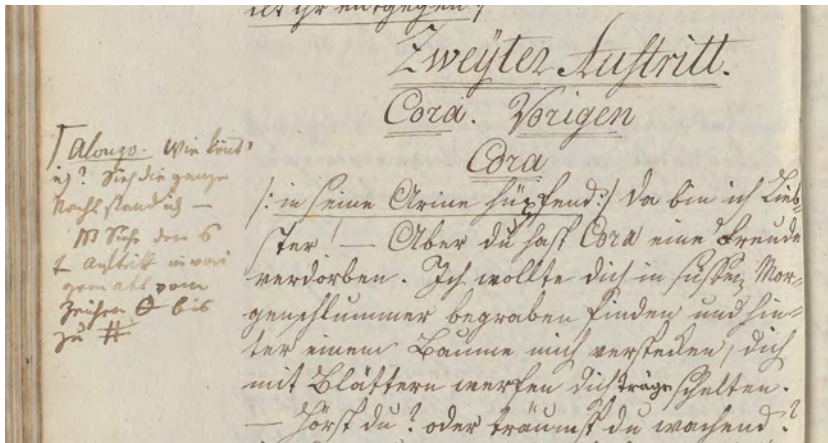 ihr entgegen:/
Zweyter Auftritt.
Cora. Vorigen
Cora
/: in seine Arme hüpfend:/ Da bin ich Lieb-
ster! — Aber du hast Cora eine Freude
verdorben. Ich wollte dich in süssen Mor-
genschlummer begraben finden und hin-
ter einem Baume mich verstecken, dich
mit Blättern werfen dich träge schelten.
— Hörst du? oder träumst du wachend?
Alonzo. Wie könt'
ich? Sieh die ganze
Nacht stand ich —
NB Siehe den 6
t Auftritt im vori
gem akt vom
Zeichen bis
zu #